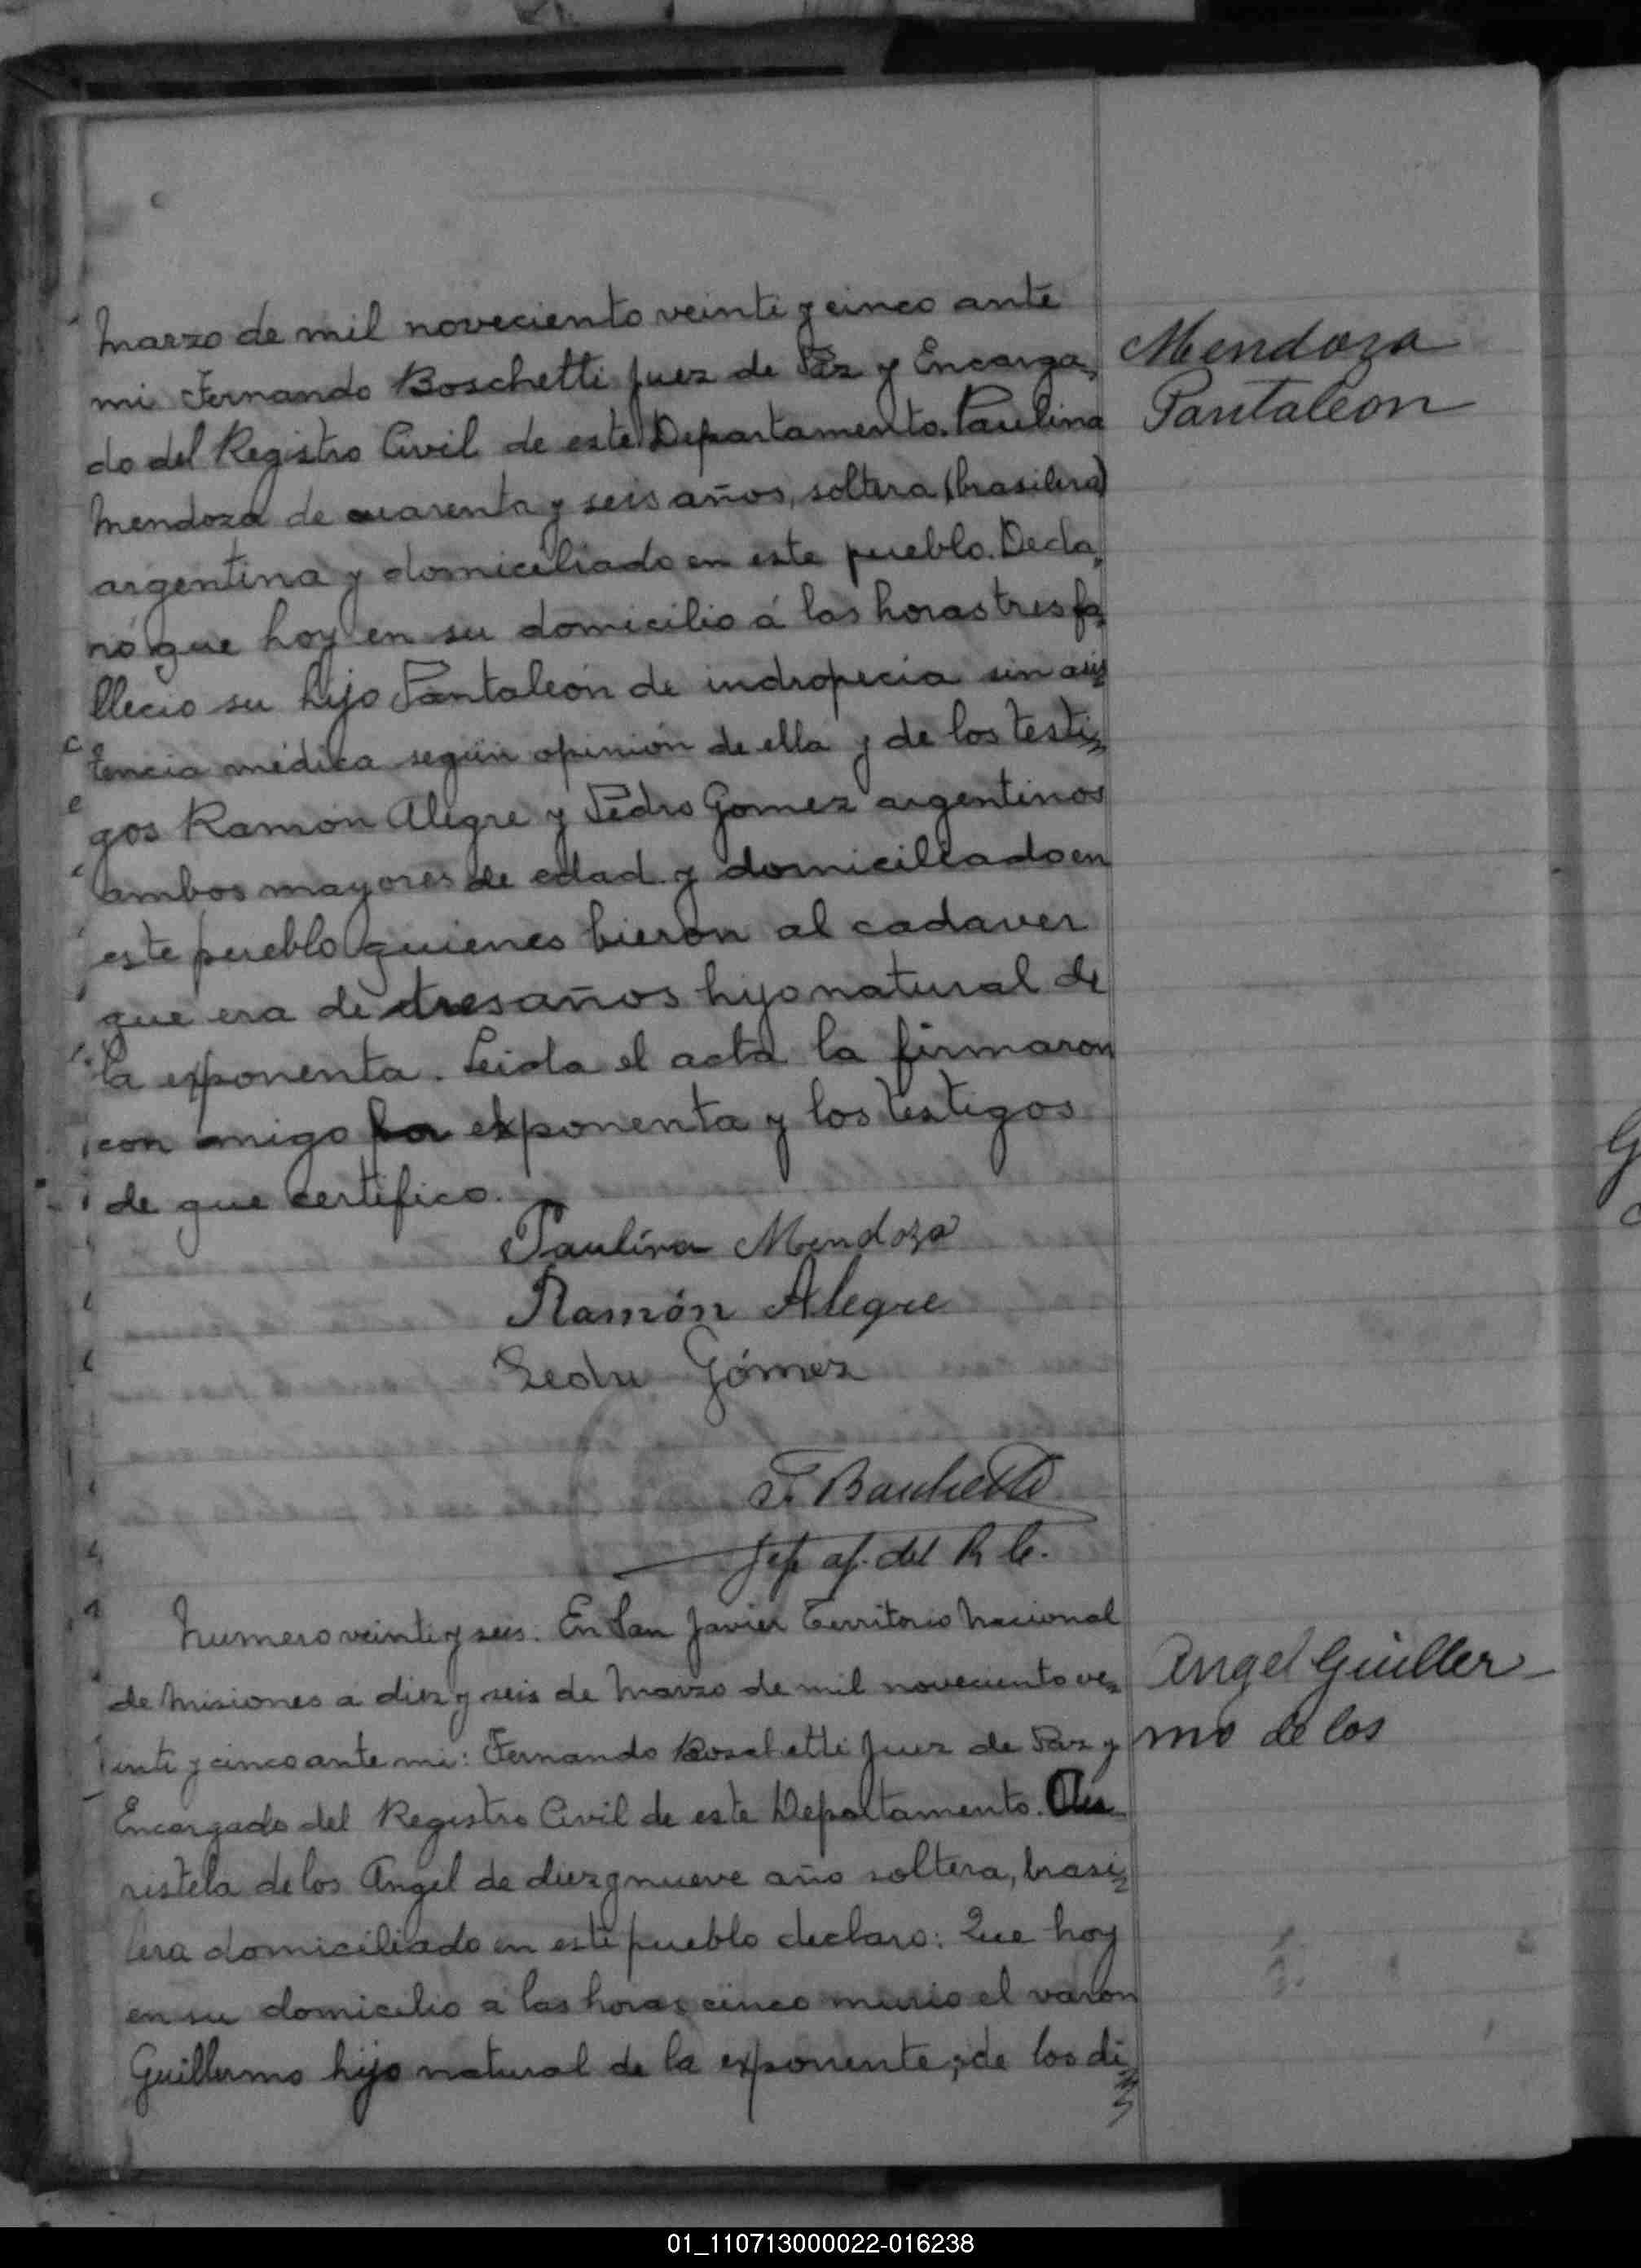 marzo de mil noveciento veinte y cinco ante
mi Fernando Boschetti Juez de Paz y Encarga-
do del Registro Civil de este Departamento. Paulina
Mendoza de cuarenta y seis años, soltera (brasilera)
argentina y domiciliado en este pueblo. Decla-
ró que hoy en su domicilio á las horas tres fa-
llecio su hijo Pantaleón de indropecia sin asis-
tencia médica según opinión de ella y de los testi-
gos Ramón Alegre y Pedro Gomez argentinos
ambos mayores de edad y domiciliado en
este pueblo quienes bieron al cadaver
que era de tres años hijo natural de
la exponenta. Leida el acta la firmaron
con migo la exponenta y los testigos
de que certifico.
Mendoza
Pantaleon
Paulina Mendoza
Ramón Alegre
Pedro Gómez
F. Boschetti
Jefe of. del R C.
Numero veinte y seis. En San Javier Territorio Nacional
de Misiones a diez y seis de Marzo de mil noveciento ve-
inte y cinco ante mi: Fernando Boschetti Juez de Paz y
Encargado del Registro Civil de este Departamento.
ristela de los Angel de diez y nueve año soltera, brasi-
lera domiciliado en este pueblo declaro: Que hoy
en su domicilio a las horas cinco murio el varon
Guillermo hijo natural de la exponente, de los di
Angel Guiller-
mo de los
01_110713000022-016238